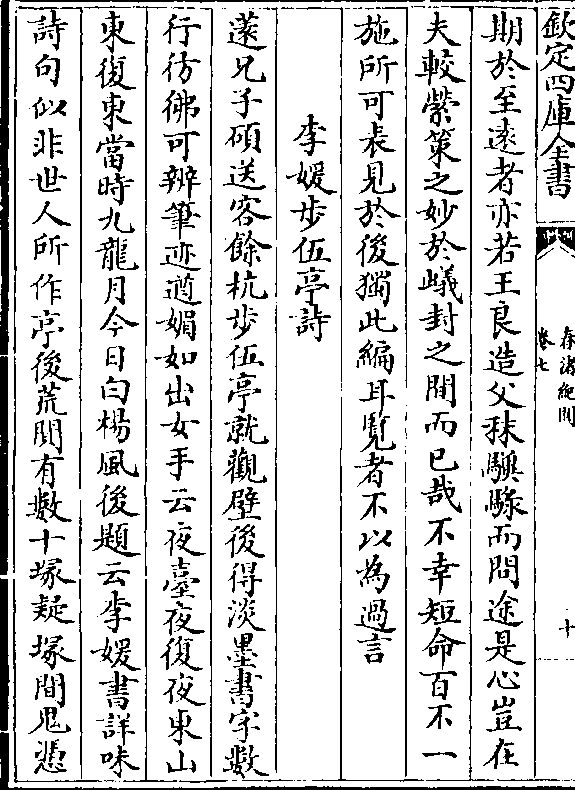 欽定四庫全書
春渚紀聞
卷七
十
期於至遠者亦若王良造父秣驥騄而問途是心豈在
夫較縈策之妙於蟻封之間而已哉不幸短命百不一
施所可表見於後獨此編耳覽者不以為過言
李媛步伍亭詩
薳兄子碩送客餘杭步伍亭就觀壁後得淡墨書字數
行彷彿可辨筆迹遒媚如出女手云夜臺夜復夜東山
東復東當時九龍月今日白楊風後題云李媛書詳味
詩句似非世人所作亭後荒閴有數十塚疑塚間鬼憑